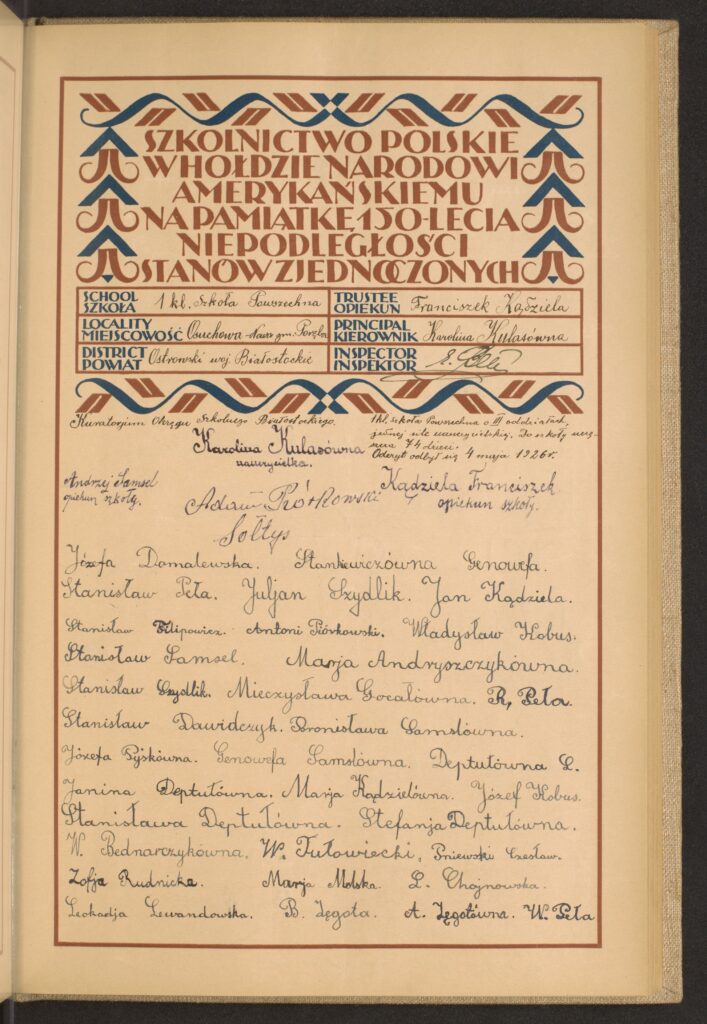 SZKOLNICTWO POLSKIE
W HOŁDZIE NARODOWI
AMERYKAŃSKIEMU
NA PAMIĄTKĘ 150-LECIA
NIEPODLEGŁOŚCI
STANÓW ZJEDNOCZONYCH
SCHOOL SZKOŁA 1 kl. Szkoła Powszechna
TRUSTEE OPIEKUN Franciszek Kądziela
LOCALITY MIEJSCOWOŚĆ Osuchowa-Nowa gm. Poręba
PRINCIPAL KIEROWNIK Karolina Kulasówna
DISTRICT POWIAT Ostrowski woj. Białostockie
INSPECTOR INSPEKTOR
Kuratorjum Okręgu Szkolnego Białostockiego.
1 kl. szkoła Powszechna o III oddziałach,
jednej sile nauczycielskiej. Do szkoły uczę-
szcza 74 dzieci.
Odczyt odbył się 4 maja 1926 r.
Karolina Kulasówna
nauczycielka.
Andrzej Samsel
opiekun szkoły.
Adam Piórkowski
Sołtys
Kądziela Franciszek
opiekun szkoły.
Józefa Domalewska. Stankiewiczówna Genowefa.
Stanisław Peła. Juljan Szydlik. Jan Kądziela.
Stanisław Filipowicz. Antoni Piórkowski. Władysław Kobus.
Stanisław Samsel. Marja Andryszczykówna.
Stanisław Szydlik. Mieczysława Gocałówna. R. Peła.
Stanisław Dawidczyk. Bronisława Samslówna.
Józefa Pyskówna. Genowefa Samslówna. Deptułówna L.
Janina Deptułówna. Marja Kądzielówna. Józef Kobus.
Stanisława Deptułówna. Stefanja Deptułówna.
W. Bednarczykówna. W. Tułowiecki, Pniewski Czesław.
Zofja Rudnicka. Marja Molska. L. Chojnowska.
Leokadja Lewandowska. B. Zęgota. A. Zęgotówna. W. Peła